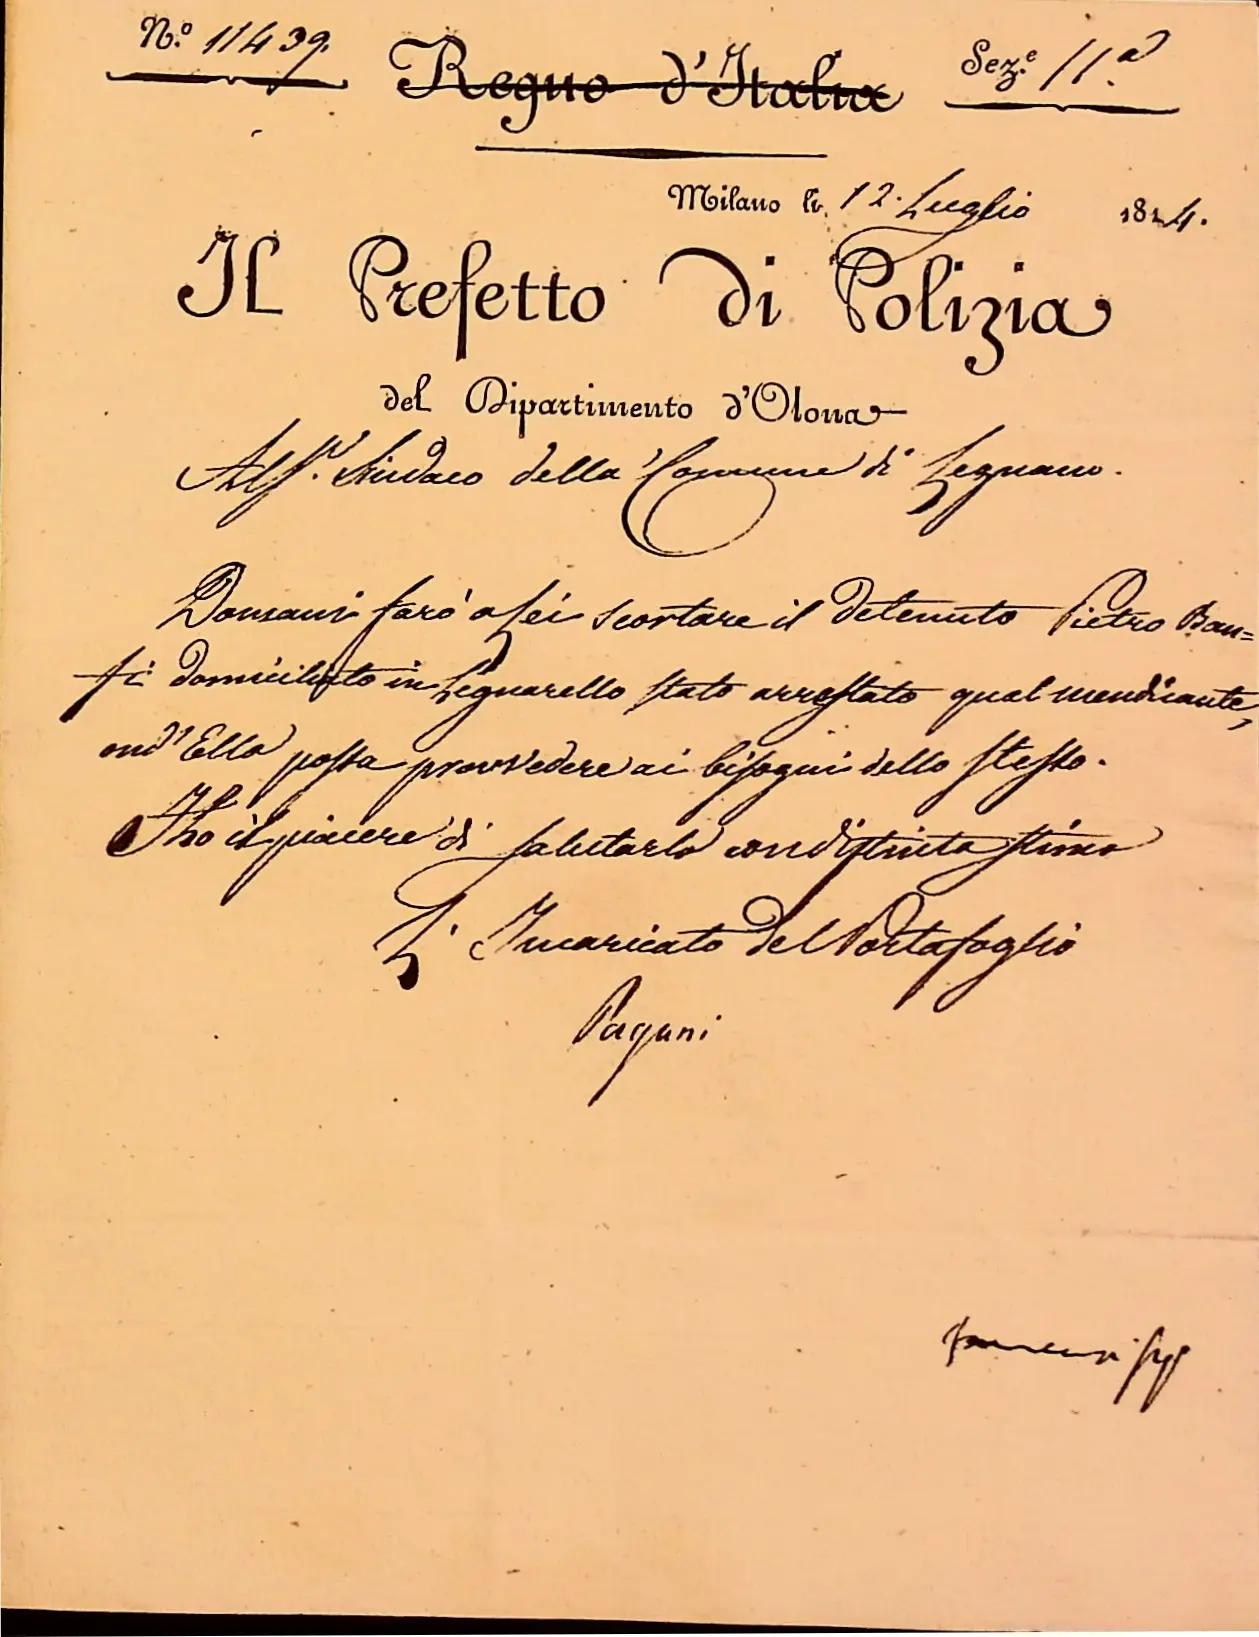 N.º 11439.
Regno d'Italia
Sez.e 11.a
Milano li. 12. Luglio 1814.
Il Prefetto di Polizia
del Dipartimento d'Olona
Al Sr. Sindaco della Comune di Legnano.
Domani farò a Lei scortare il detenuto Pietro Ban=
fi domiciliato in Legnarello stato arrestato qual mendicante,
ond'Ella possa provvedere ai bisogni dello stesso.
Ho il piacere di salutarla con distinta stima
L'Incaricato del Portafoglio
Pagani